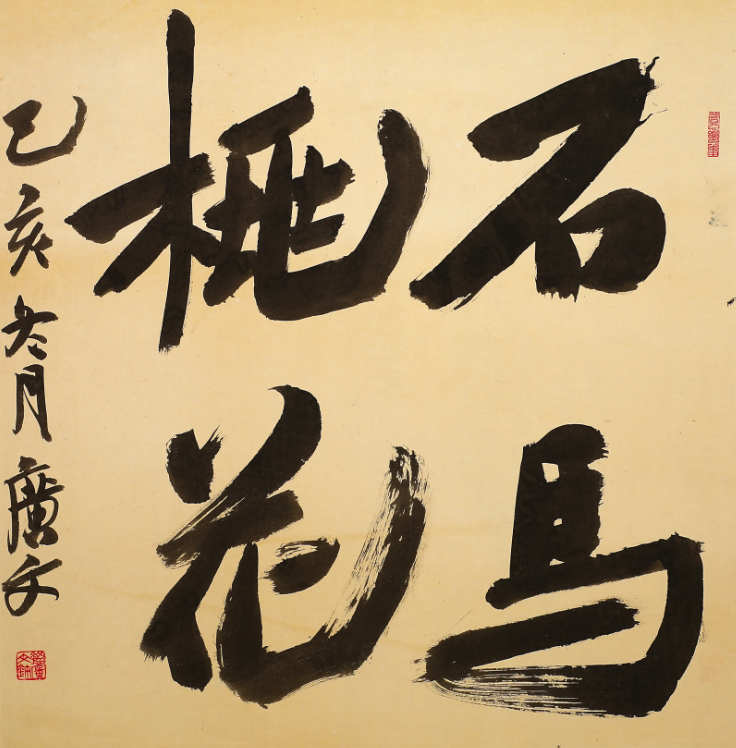 石馬
桃花
己亥冬月廣文